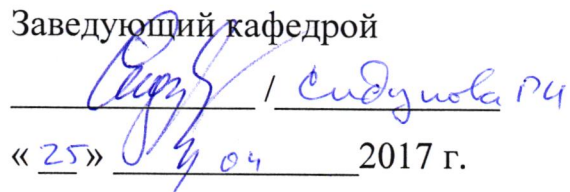 Заведующий кафедрой
/ Сидунова ГИ
« 25» 04 2017 г.